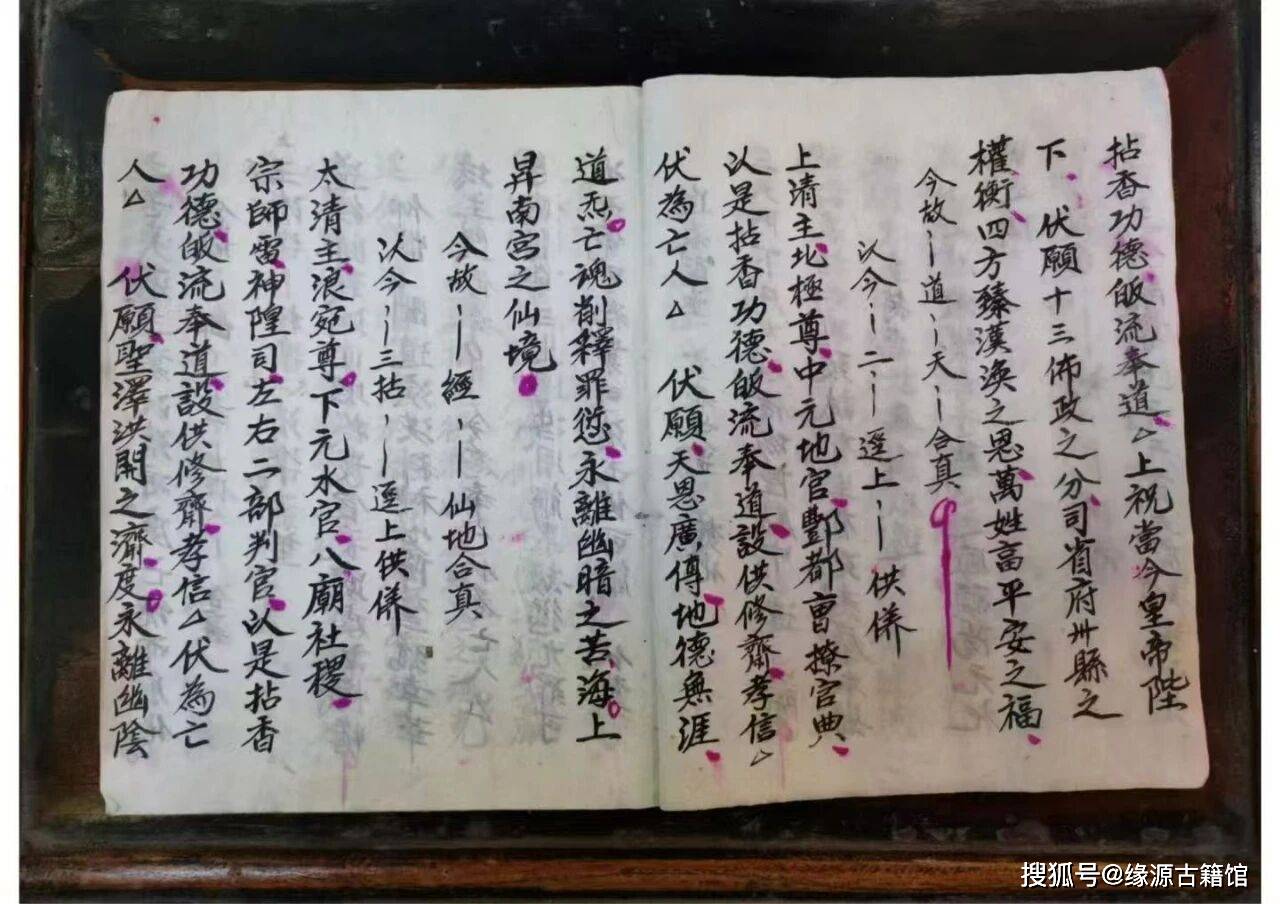 拈香功德皈流奉道△上祝當今皇帝陛
下、伏願十三佈政之分司省府卅縣之
權衡四方臻漢渙之恩萬姓畐平安之福
今故〡道〡天〡合真
以今〡二〡遥上〡供侢
上清主北極尊中元地官酆都曺撩官典
以是拈香功德皈流奉道設供修齋孝信△
伏為亡人△ 伏願天恩廣傅地德無涯
道炁亡魂削釋罪愆永離幽暗之苦海上
昇南宮之仙境
今故〡經〡仙地合真
以今〡三拈〡遥上供侢
太清主浪宛尊下元水官八廟社稷
宗師雷神隍司左右二部判官以是拈香
功德皈流奉道設供修齋孝信△伏為亡
人△ 伏願聖澤洪開之濟度永離幽陰
搜狐号@缘源古籍馆